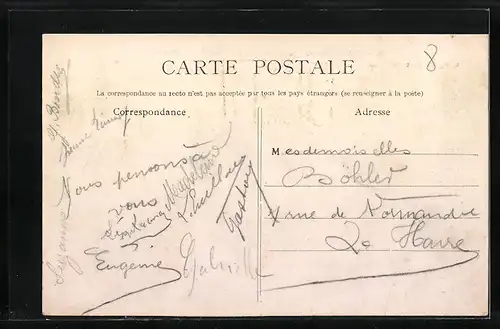 8
CARTE POSTALE
La correspondance au recto n'est pas acceptée par tous les pays étrangers (se renseigner à la poste)
Correspondance
Adresse
Nous pensons à
vous
Madeleine
Gaston
Suzanne
Eugénie
Gabrielle
Mesdemoiselles
Böhler
rue de Normandie
Le Havre